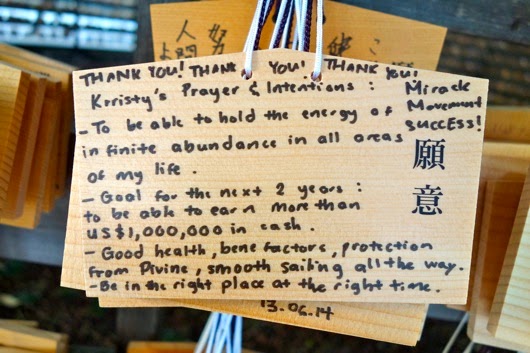 THANK YOU! THANK YOU! THANK YOU!
Krristy's Prayer & Intentions :
- To be able to hold the energy of
in finite abundance in all areas
of my life .
- Goal for the next 2 years :
to be able to earn more than
US$1,000,000 in cash .
- Good health, bene factors, protection
from Divine, smooth sailing all the way.
- Be in the right place at the right time.
Miracle
Movement
SUCCESS!
願意
13.06.14
人間